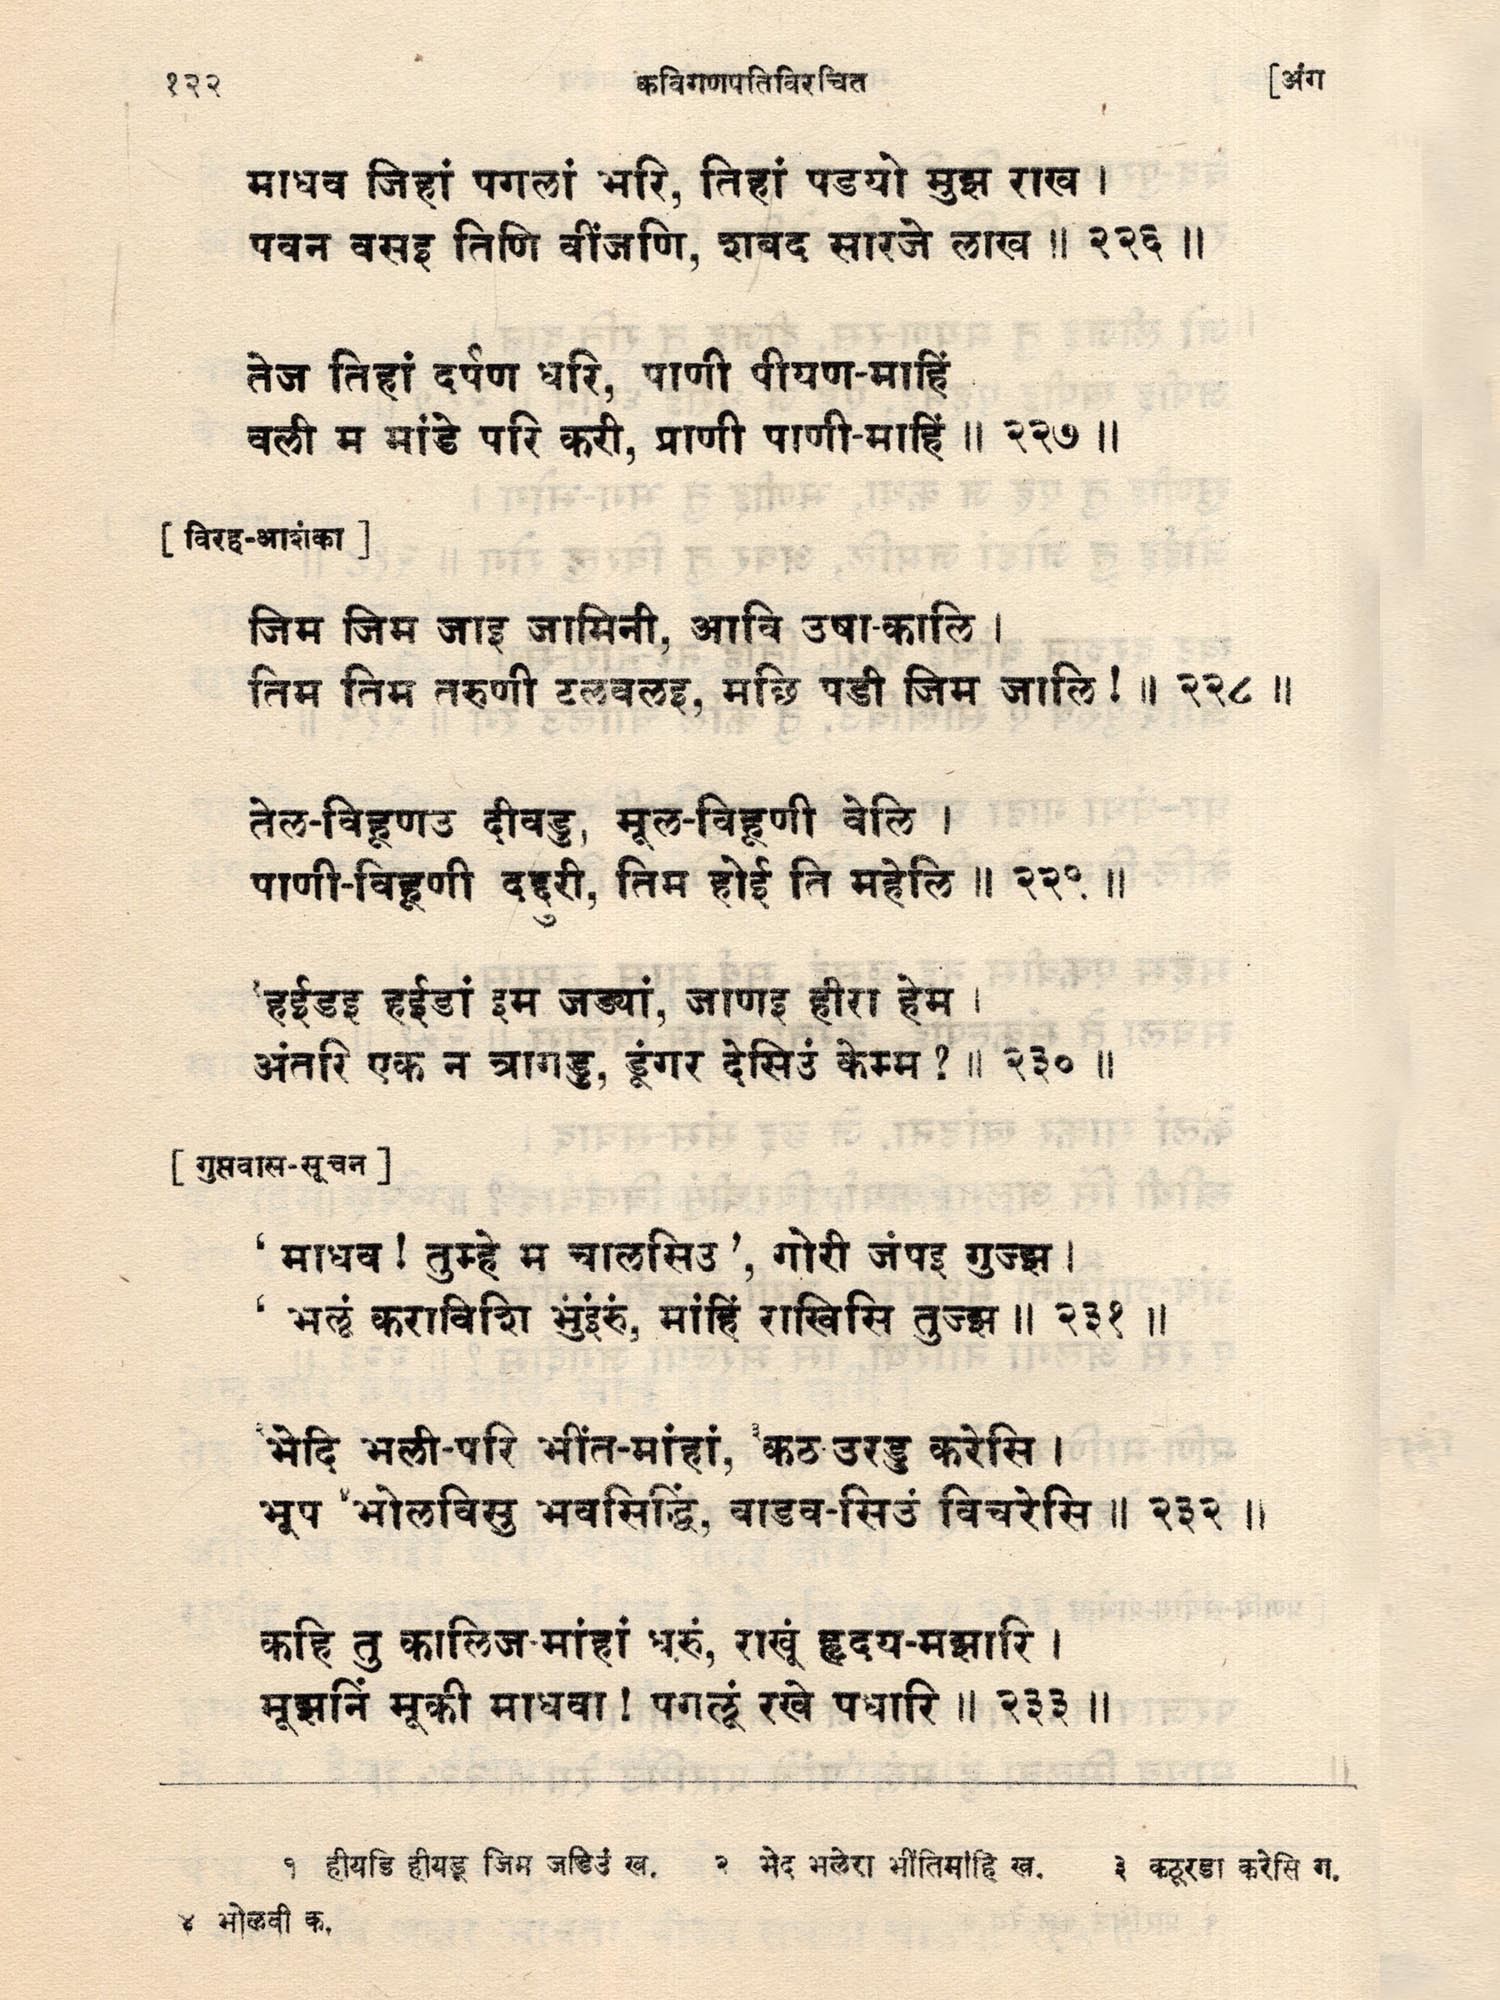 १२२ कविगणपतिविरचित [अंग
माधव जिहां पगलां भरि, तिहां पडयो मुझ राख ।
पवन वसइ तिणि वींजणि, शबद सारजे लाख ॥ २२६ ॥
तेज तिहां दर्पण धरि, पाणी पीयण-माहिं
वली म मांडे परि करी, प्राणी पाणी-माहिं ॥ २२७ ॥
[ विरह-आशंका ]
जिम जिम जाइ जामिनी, आवि उषा-कालि ।
तिम तिम तरुणी टलवलइ, मछि पडी जिम जालि ! ॥ २२८ ॥
तेल-विहूणउ दीवडु, मूल-विहूणी वेलि ।
पाणी-विहूणी दद्दुरी, तिम होई ति महेलि ॥ २२९ ॥
१हईडइ हईडां इम जड्यां, जाणइ हीरा हेम ।
अंतरि एक न त्रागडु, डूंगर देसिउं केम्म ? ॥ २३० ॥
[ गुप्तवास-सूचन ]
‘ माधव ! तुम्हे म चालसिउ ’, गोरी जंपइ गुज्झ ।
‘ भलूं कराविशि भुंइंरुं, मांहिं राखिसि तुज्झ ॥ २३१ ॥
२भेदि भली-परि भींत-मांहां, ३कठ-उरडु करेसि ।
भूप ४भोलविसु भवसिद्धिं, वाडव-सिउं विचरेसि ॥ २३२ ॥
कहि तु कालिज-मांहां धरुं, राखूं हृदय-मझारि ।
मूझनिं मूकी माधवा ! पगलूं रखे पधारि ॥ २३३ ॥
१ हीयडि हीयडू जिम जडिउं ख. २ भेद भलेरा भींतिमांहि ख. ३ कठूरडा करेसि ग.
४ भोळवी क.